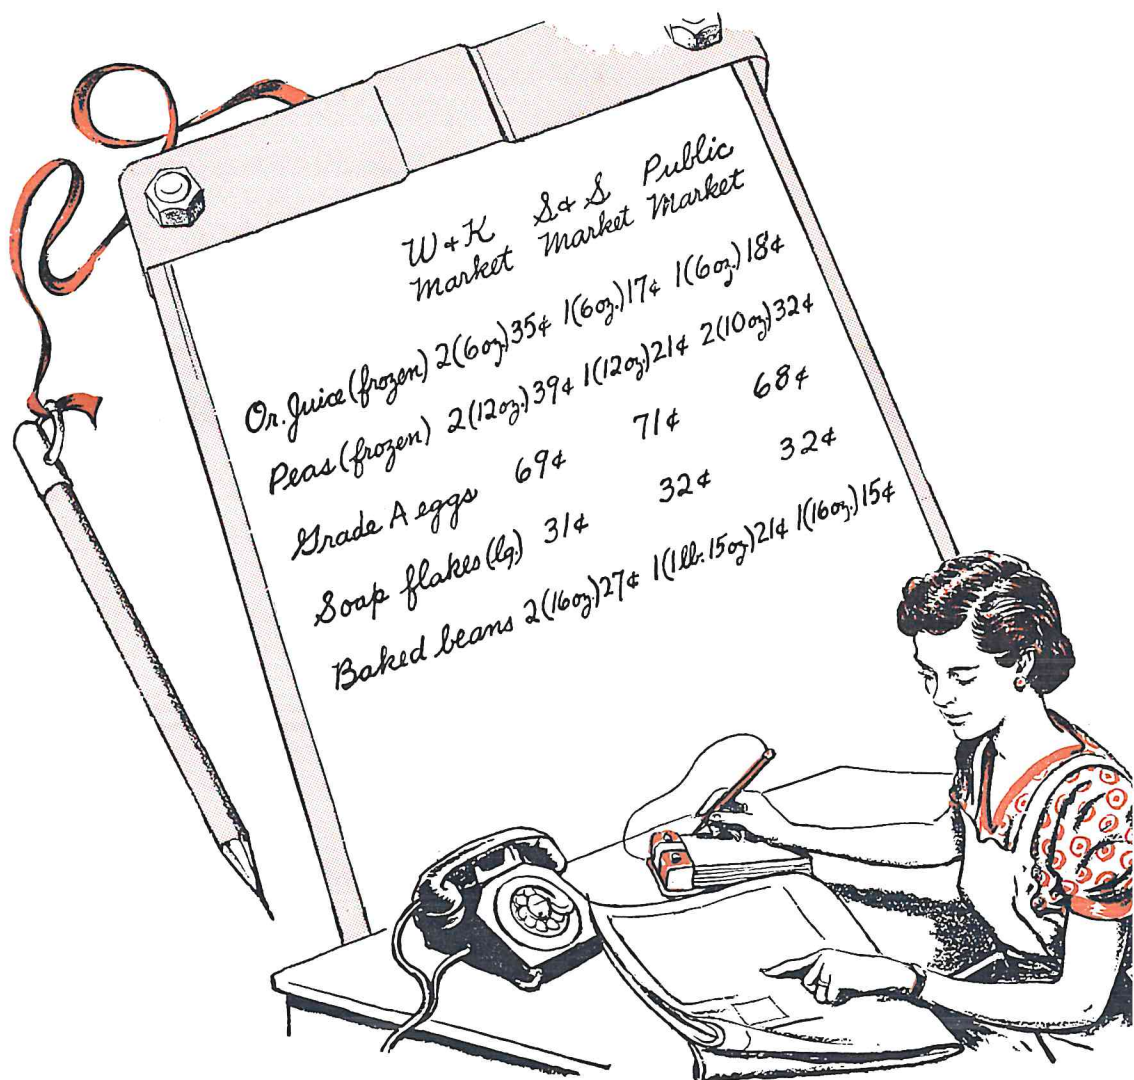 W + K S & S Public
Market Market Market
Or. Juice (frozen) 2(6oz.)35¢ 1(6oz.)17¢ 1(6oz.)18¢
Peas (frozen) 2(12oz.)39¢ 1(12oz)21¢ 2(10oz)32¢
Grade A eggs 69¢ 71¢ 68¢
Soap flakes (lg.) 31¢ 32¢ 32¢
Baked beans 2(16oz)27¢ 1(1 lb. 15oz)21¢ 1(16oz.)15¢